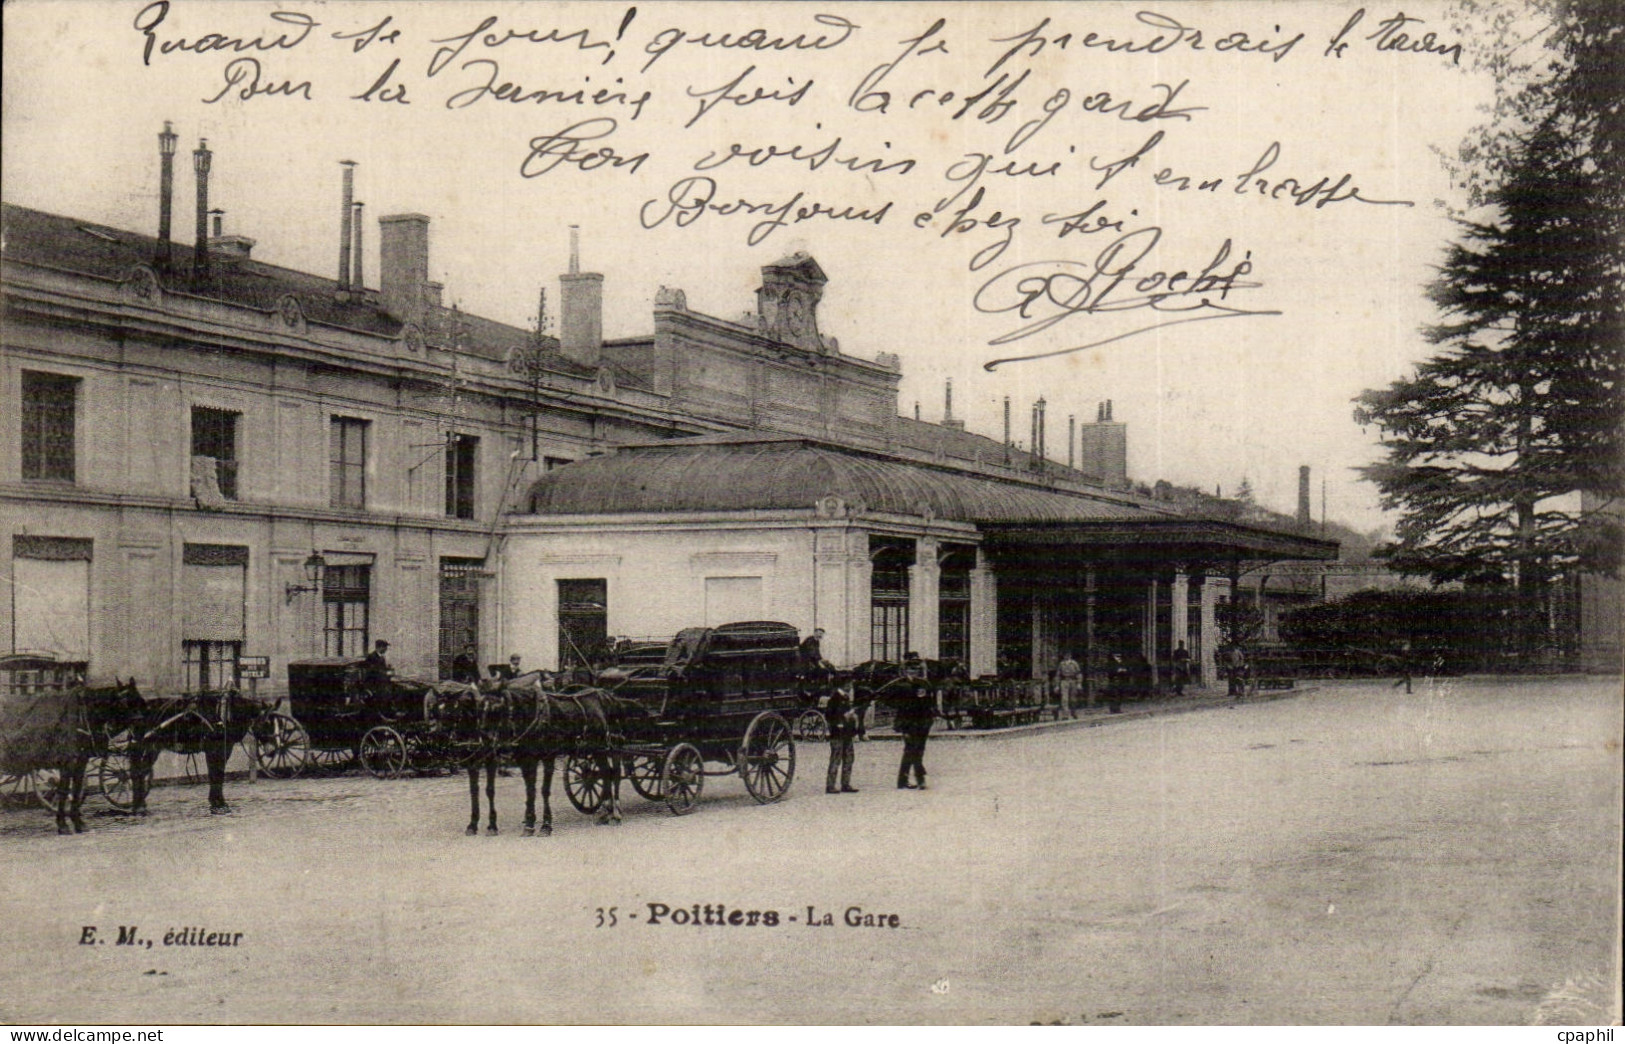 Quand se jour! quand je prendrais le train
Pour la derniere fois a cette gard
Ton voisin qui t'embrasse
Bonjours chez toi
Roché
35 - Poitiers - La Gare
E. M., éditeur
cpaphil